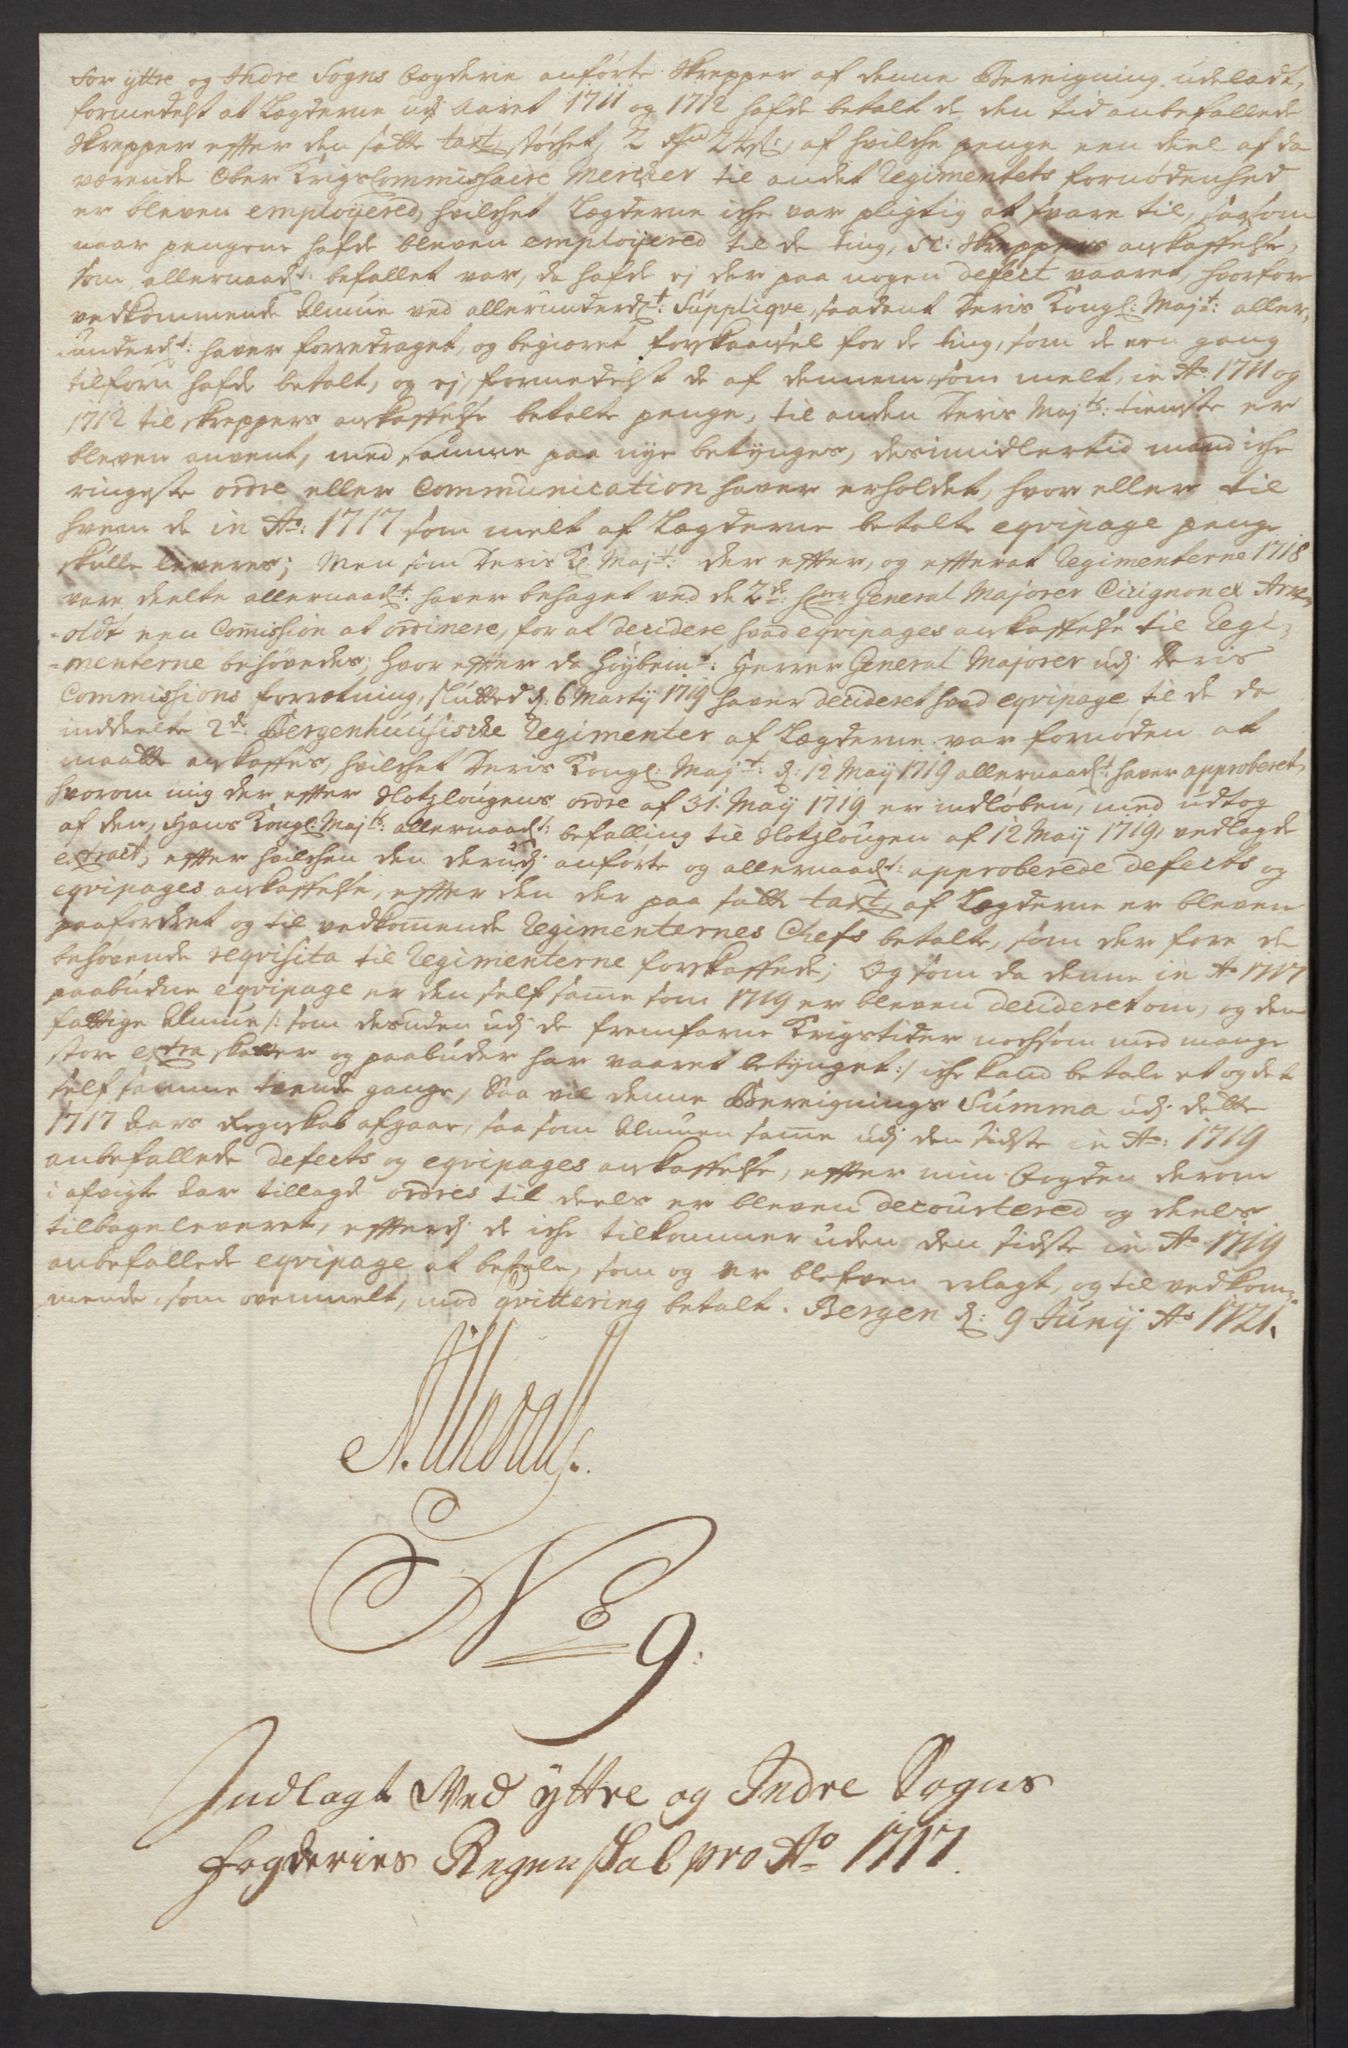 for yttre og Indre Sogns Fogderie anførte Skrepper af denne Bereigning udeladt,
formedelst at Lægderne udj Aaret 1711 og 1712 hafde betalt de den tid anbefallede
Skrepper efter den satte taxt, stöchet, 2 af hvilche penge een deel af da
værende Ober Krigs Commissaire Mercker til andet Regimentets fornødenhed
er bleven employered, hvilchet Lægderne iche var pligtig at svare til, saasom
naar pengene hafde bleven employered til de ting, sc: Skreppers anskaffelse,
som allernaad.t: befallet var, da hafde ej der paa nogen defect vaaret, hvorfor
vedkommende Almue ved allerunderd.t: Supplique, saadant Deris Kongl: Maj.t: aller,
underd.t: haver forredraget, og begiæret forskaansel for de ting, som de een gang
tilforn hafde betalt, og ej, formedelst de af dennem, som melt, in Ao: 1711 og
1712 til skreppers anskaffelse betalte penge, til anden Deris Maj.ts: tienste er
bleven anvent, med samme paa nye betynges, desimidlertid mand iche
ringeste ordre eller Communication haver erholdet, hvor eller til
hvem de in Ao: 1717 som melt af Lægderne betalte eqvipage penge
skulle leveres; Men som Deris K: Maj.t: der efter, og efterat Regimenterne 1718
vare deelte allernaad.t: haver behaget ved de 2de: Hrr General Majorer Cicignon et Arn,
=oldt een Comission at ordinere, for at decidere hvad eqvipages anskaffelse til Regi,
=menterne behøvedes; hvor efter da Høybem.te: Herrer General Majorer udj Deris
Commissions forretning, slutted d: 6 Martij 1719 haver decideret hvad eqvipage til de da
inddeelte 2de: Bergenhuusische Regimenter af Lægderne var fornøden at
maatte anskaffes, hvilchet Deris Kongl: Maj.t: d: 12 Maij 1719 allernaad.t: haver approberet,
hvorom mig der efter Slotzlougens ordre af 31. Maij 1719 er indløben, med udtog
af den, Hans Kongl: Maj.ts: allernaad.te: befalling til Slotzlougen af 12 Maij 1719, vedlagde
extract, efter hvilchen den derudj anførte og allernaad.t: approberede defects og
eqvipages anskaffelse, efter den der paa satte taxt, af Lægderne er bleven
paafordret og til vedkommende Regimenternes Chefs betalt, som der fore de
behøvende reqvisita til Regimenterne forskaffede; Og som da denne in Ao 1717
paabudne eqvipage er den self samme som 1719 er bleven decideret om, og den
fattige Almue /: som desuden udj de fremfarne Krigstider nochsom med mange
store extra skatter og paabuder har vaaret betynget :/ iche kand betale et og det
self samme tvende gange, Saa vil denne Bereignings Summa udj dette
1717 Aars Regnskab afgaae, saa som Almuen samme udj den sidste in Ao: 1719
anbefallede defects og eqvipages anskaffelse, efter min Fogden derom
i afvigte Aar tillagde ordres til deels er bleven decourtered og deels
tilbageleveret, efterdj de iche tilkommer uden den sidste in Ao 1719
anbefallede eqvipage at betale, som og er blefven erlagt, og til vedkom=
mende, som ovenmelt, mod qvittering betalt. Bergen d: 9 Junij Ao 1721.
No 9:
Indlagt Ved yttre og Indre Sogns
fogderies Regenskab pro Ao 1717.